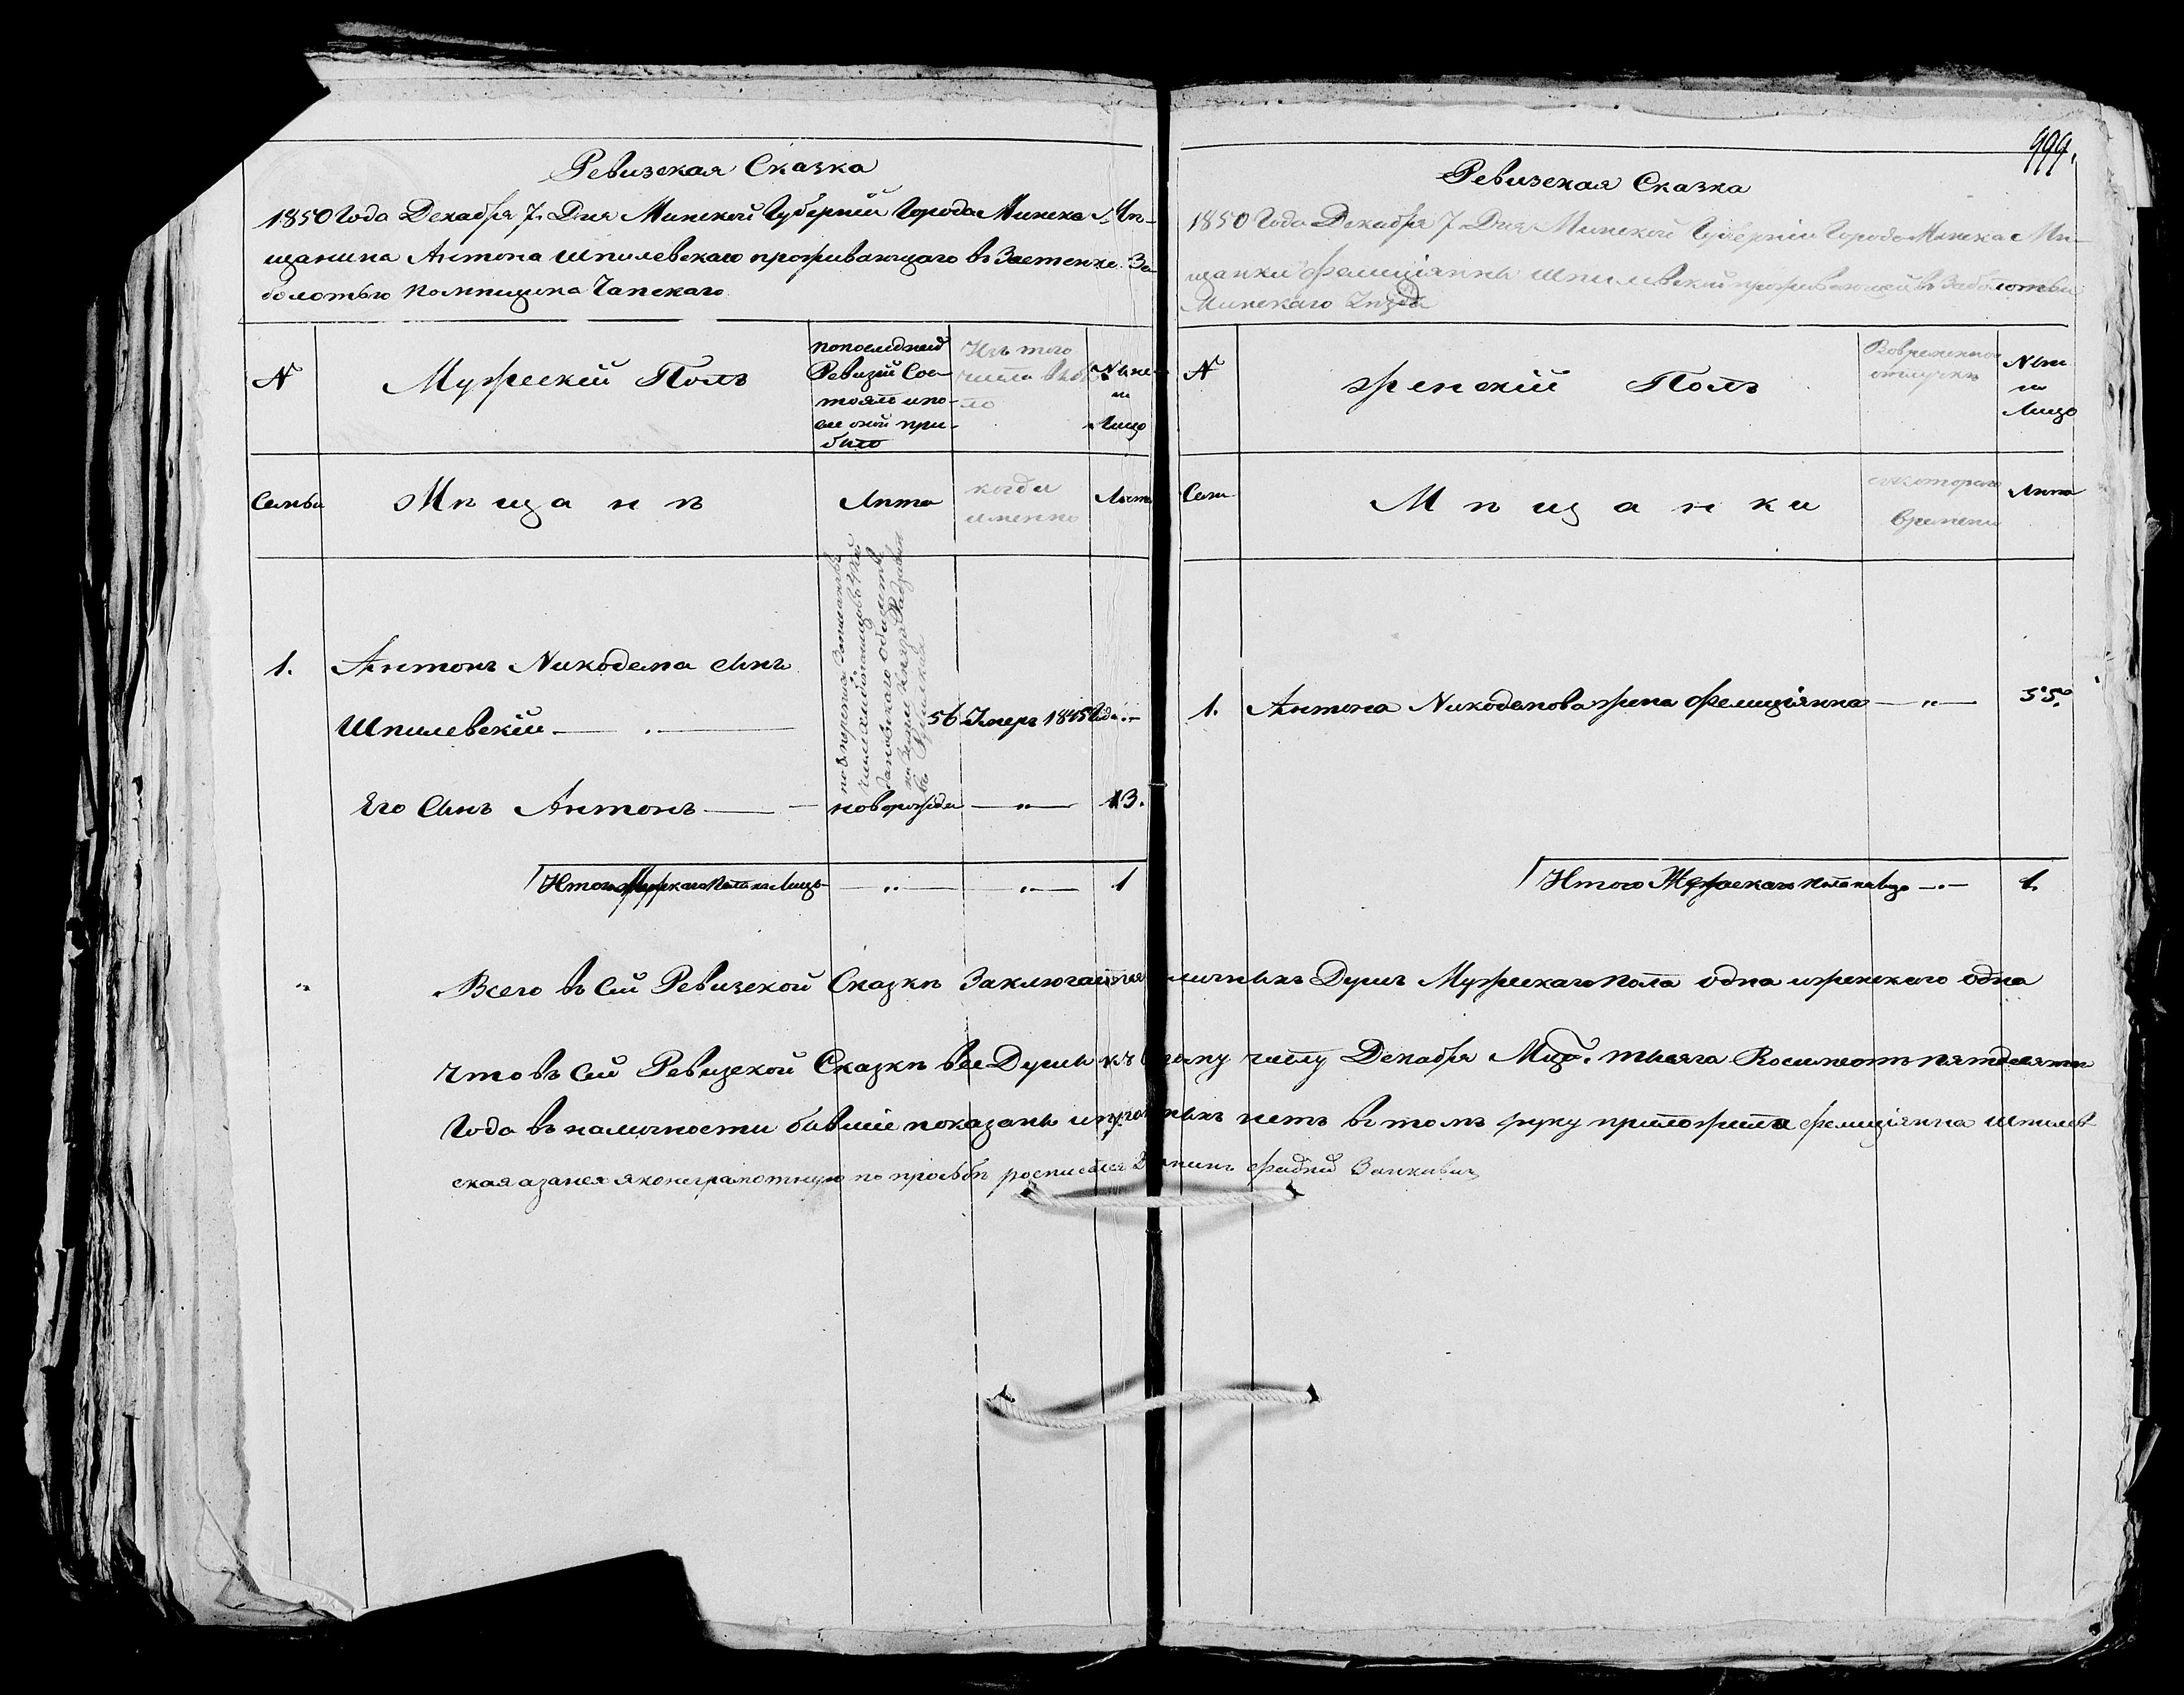 Ревизская Сказка
1850 Года Декабря 7. Дня Минской Губерніи Города Минска Мѣ-
щанина Антона Шпилевскаго проживающаго въ Застенке За-
болотью помѣщика Чапскаго
№
Мужескій Полъ
по последней
Ревизіи Сос-
тояло и по-
сле оной при-
было
Изъ того
числа выбы-
ло
Ныне
на
Лицо
Семьи
Мѣщанѣ
Лѣта
когда
именно
Лѣта
1. Антонъ Никодема сынъ
Шпилевскій 56 Умеръ 1845 года
Его Сынъ Антонъ новорожден 13.
Итого Мужескаго Пола на Лицо 1
999.
Ревизская Сказка
1850 Года Декабря 7 Дня Минской Губерніи Города Минска Мѣ-
щанки Фелиціянны Шпилевской проживающей въ Заболотьи
Минскаго Уѣзда
№
Женскій Полъ
Во временной
отлучкѣ
Ныне
на
Лицо
Семьи
Мѣщанки
съ котораго
времени
Лѣта
1. Антона Никодемова жена Фелиціянна 55.
Итого Женскаго Пола на Лицо 1.
Всего въ Сей Ревизской Сказкѣ Заключается личныхъ Душъ Мужескаго пола одна и женскаго одна
Что въ Сей Ревизской Сказкѣ все Души къ числу Декабря Мца. тысяча Восимсотъ пятдесятаго
Года въ наличности бывшіе показаны и нетъ въ томъ руку приложила Фелиціянна Шпилев
ская а за нея яко неграмотную по прозьбѣ росписался